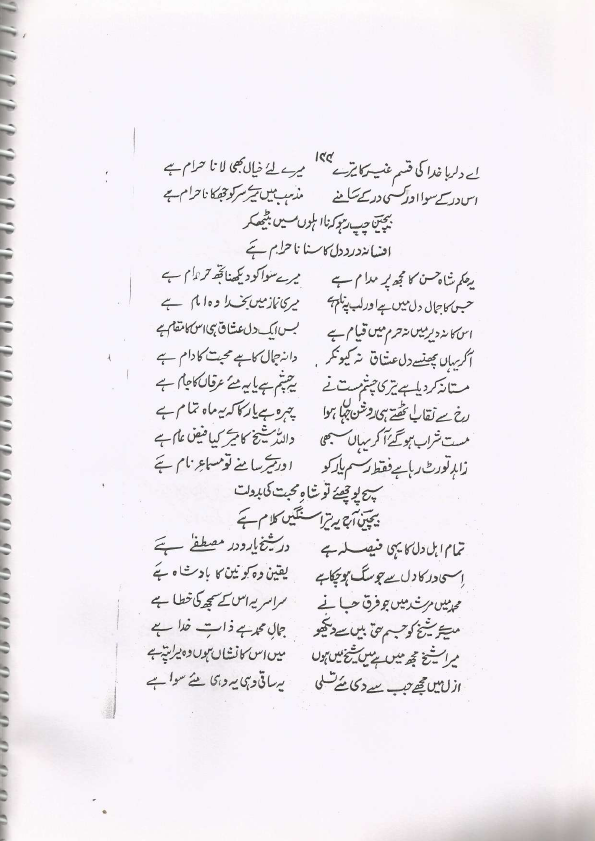 ۱۴۴
اے دلربا خدا کی قسم غیر کا ترے میرے لئے خیال بھی لانا حرام ہے
اس در کے سوا اور کسی در کے سامنے مذہب میں میرے سر کو جھکانا حرام ہے
بیچین چپ رہو کہ نا اہلوں میں بیٹھکر
افسانہ درد دل کا سنانا حرام ہے
یہ حکم شاہ حسن کا مجھ پر مدام ہے میرے سوا کو دیکھنا تجھ حرام ہے
جس کا جمال دل میں ہے اور لب پہ نام ہے میری نماز میں بخدا وہ امام ہے
اس کا نہ دیر میں نہ حرم میں قیام ہے بس ایک دل عشاق ہی اس کا مقام ہے
آ کر یہاں پھنسے دل عشاق نہ کیونکر دانہ جمال کا ہے محبت کا دام ہے
مستانہ کر دیا ہے تیری چشم مست نے یہ چشم ہے یا یہ مئے عرفاں کا جام ہے
رخ سے نقاب اٹھتے ہی روشن جہاں ہوا چہرہ ہے یار کا کہ یہ ماہ تمام ہے
مست شراب ہو گئے آ کر یہاں سبھی واللہ شیخ کا میرے کیا فیض عام ہے
زاہد تو رٹ رہا ہے فقط رسم یار کو اور میرے سامنے تو مسماء نام ہے
سچ پوچھئے تو شاہِ محبت کی بدولت
بیچین آج یہ ترا سنگیں کلام ہے
تمام اہل دل کا یہی فیصلہ ہے در شیخ یارو در مصطفےٰ ہے
اسی در کا دل سے جو سگ ہو چکا ہے یقین وہ کونین کا بادشاہ ہے
محمد میں مرشد میں جو فرق جانے سراسر یہ اس کے سمجھ کی خطا ہے
میرے شیخ کو چسم حق بیں سے دیکھو جمال محمد ہے ذاتِ خدا ہے
میرا شیخ مجھ میں ہے میں شیخ میں ہوں میں اس کا نشاں ہوں وہ میرا پتہ ہے
ازل میں مجھے جب سے دی مئے تسلی یہ ساقی وہی یہ وہی مئے سوا ہے